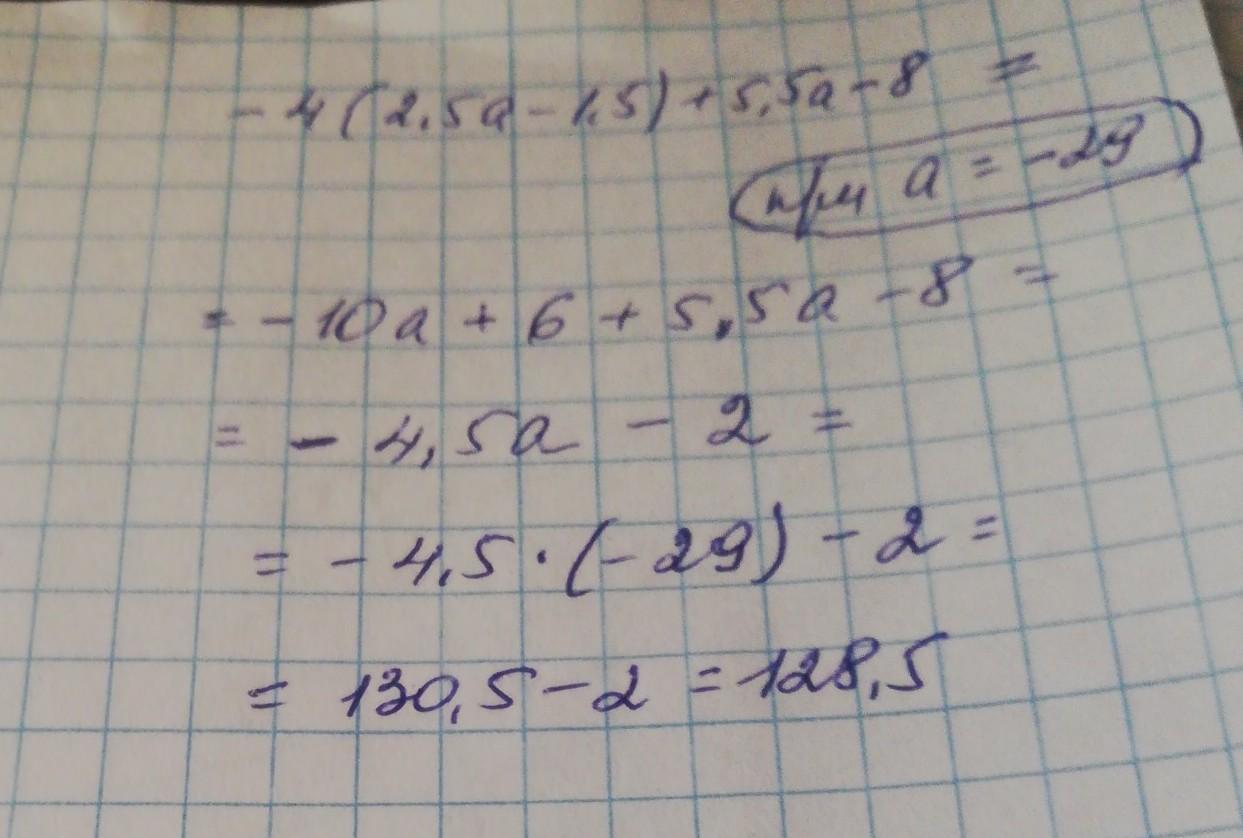 - 4 (2,5a - 1,5) + 5,5a - 8 =
при a = -29
= - 10a + 6 + 5,5a - 8 =
= - 4,5a - 2 =
= - 4,5 · (-29) - 2 =
= 130,5 - 2 = 128,5